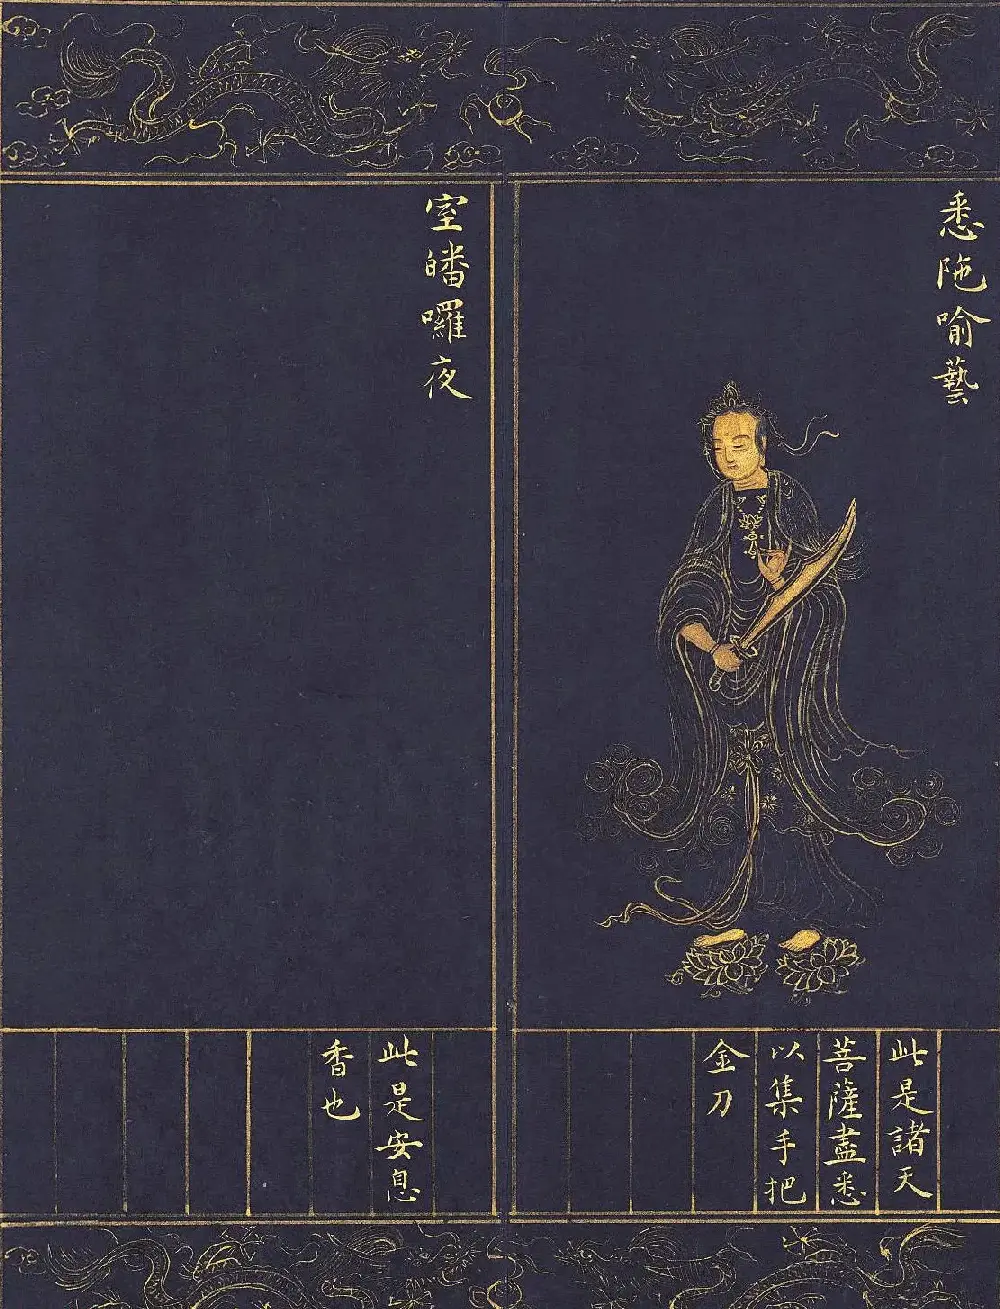 悉陁喻藝
此是諸天
菩薩盡悉
以集手把
金刀
室皤囉夜
此是安息
香也